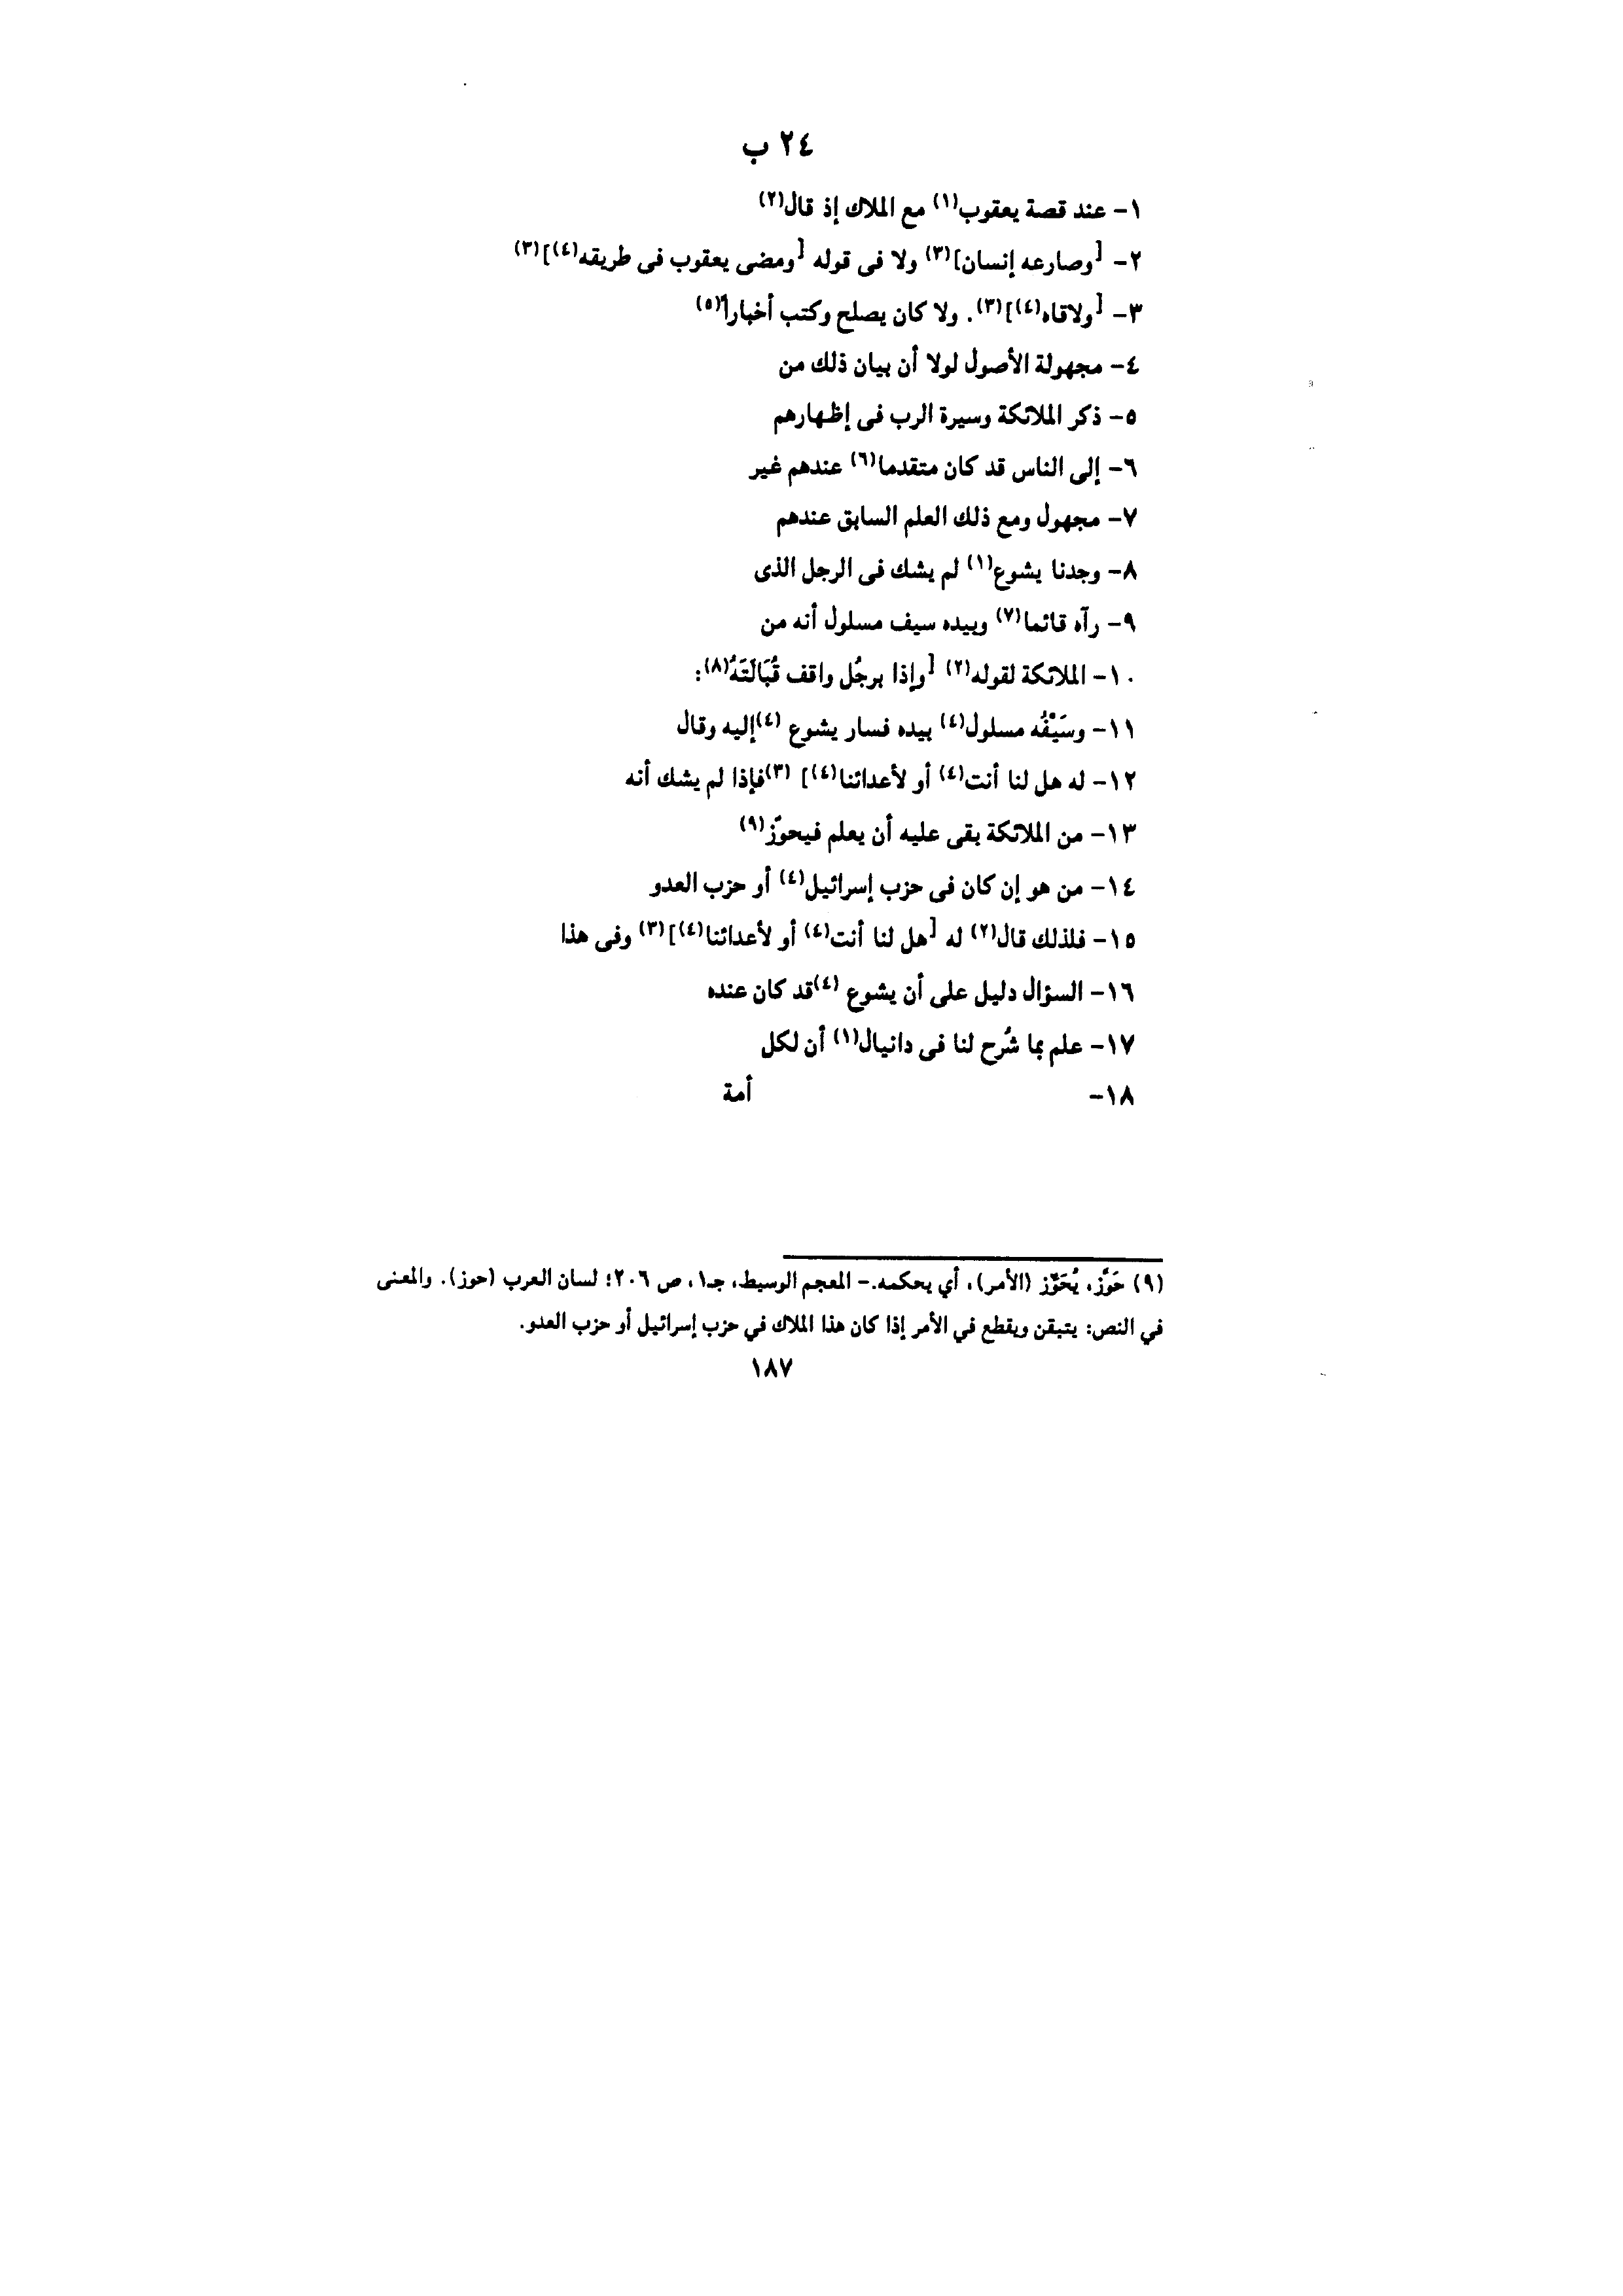 ٢٤ ب
١- عند قصة يعقوب(١) مع الملاك إذ قال(٢)
٢- [وصارعه إنسان](٣) ولا فى قوله [ومضى يعقوب فى طريقه(٤)](٣)
٣- [ولاقاه(٤)](٣). ولا كان يصلح وكتب أخباراً(٥)
٤- مجهولة الأصول لولا أن بيان ذلك من
٥- ذكر الملائكة وسيرة الرب فى إظهارهم
٦- إلى الناس قد كان متقدما(٦) عندهم غير
٧- مجهول ومع ذلك العلم السابق عندهم
٨- وجدنا يشوع(١) لم يشك فى الرجل الذى
٩- رآه قائما(٧) وبيده سيف مسلول أنه من
١٠- الملائكة لقوله(٢) [وإذا برجُل واقف قُبَالَتَهُ(٨):
١١- وسَيْفُه مسلول(٤) بيده فسار يشوع (٤)إليه وقال
١٢- له هل لنا أنت(٤) أو لأعدائنا(٤)] (٣)فإذا لم يشك أنه
١٣- من الملائكة بقى عليه أن يعلم فيحوّز(٩)
١٤- من هو إن كان فى حزب إسرائيل(٤) أو حزب العدو
١٥- فلذلك قال(٢) له [هل لنا أنت(٤) أو لأعدائنا(٤)](٣) وفى هذا
١٦- السؤال دليل على أن يشوع (٤)قد كان عنده
١٧- علم بما شُرح لنا فى دانيال(١) أن لكل
١٨- أمة
(٩) حَوَّز، يُحَوِّز (الأمر)، أي يحكمه.- المعجم الوسيط، جـ١، ص ٢٠٦؛ لسان العرب (حوز). والمعنى
في النص: يتيقن ويقطع في الأمر إذا كان هذا الملاك في حزب إسرائيل أو حزب العدو.
١٨٧